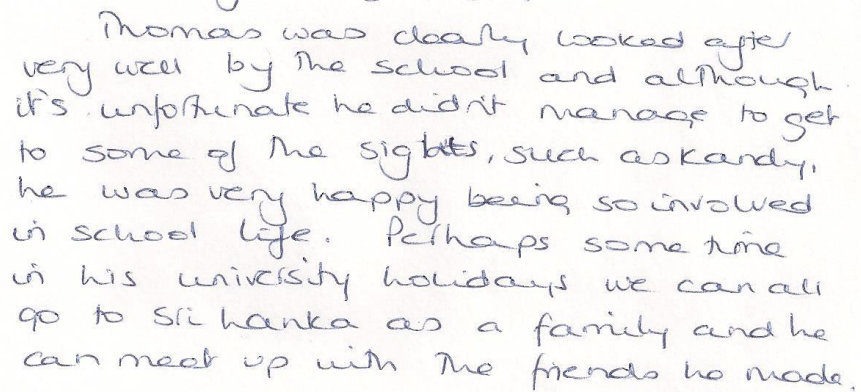 Thomas was clearly looked after
very well by the school and although
it's unfortunate he didn't manage to get
to some of the sights, such as Kandy,
he was very happy being so involved
in school life. Perhaps some time
in his university holidays we can all
go to Sri Lanka as a family and he
can meet up with the friends he made.